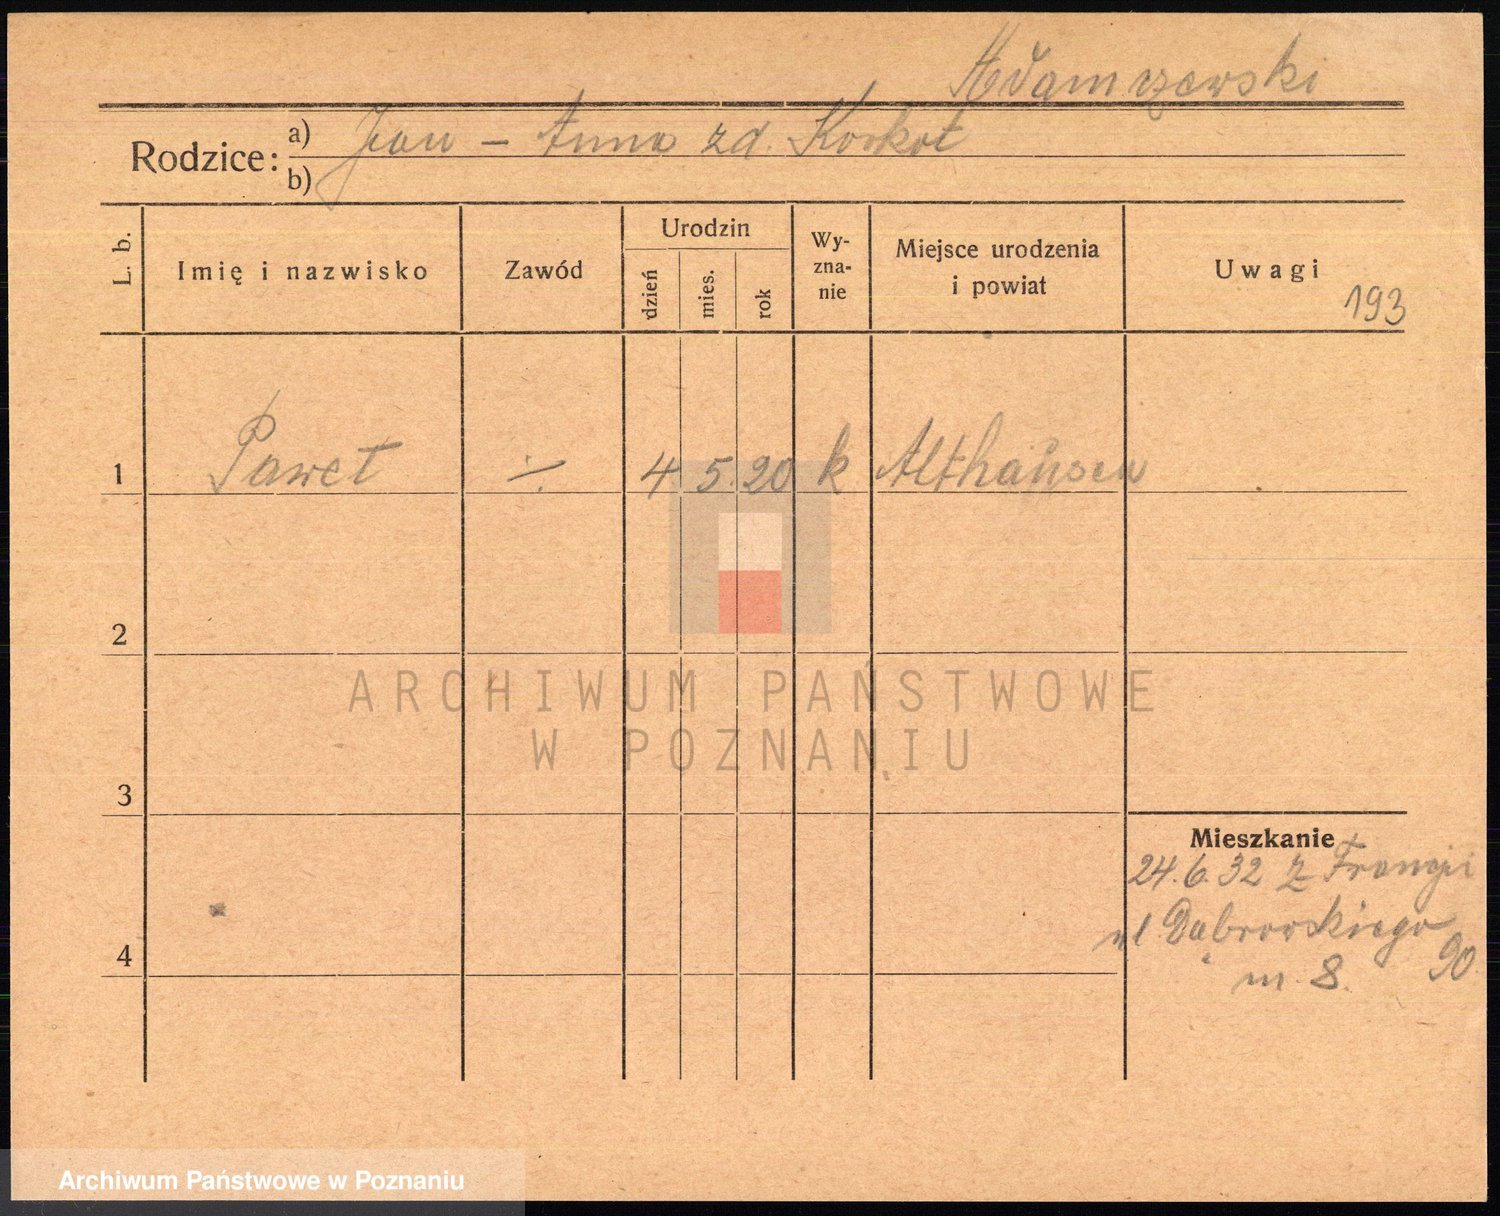 Adamczewski
Rodzice: a) Jan - Anna zd. Korkot
b)
L. b. Imię i nazwisko Zawód Urodzin dzień mies. rok Wy-zna-nie Miejsce urodzenia i powiat Uwagi
193
1 Paweł ·/. 4 5 20 k Althausen
2
3
4
Mieszkanie
24.6.32 z Francji
ul Dąbrowskiego 90
m. 8.
ARCHIWUM PAŃSTWOWE
W POZNANIU
Archiwum Państwowe w Poznaniu